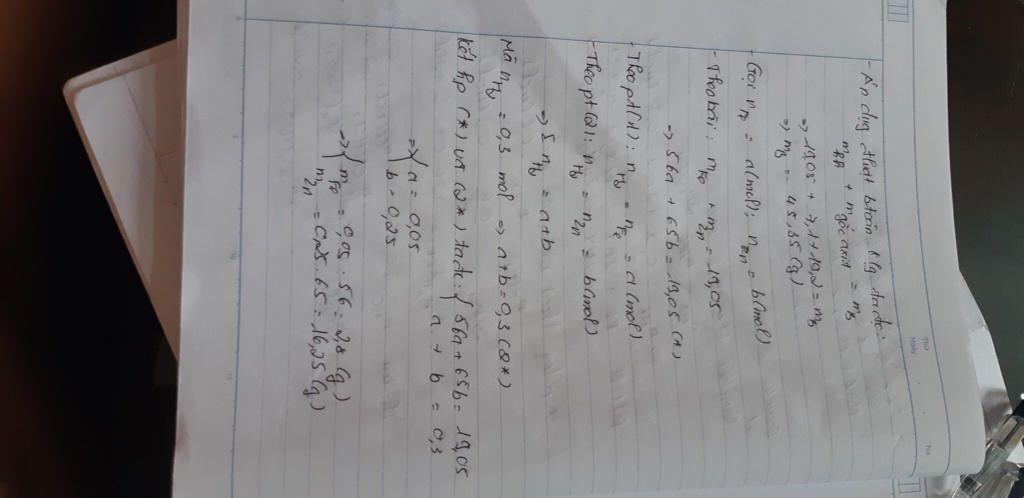 Thứ
Ngày
No
- Áp dụng định luật bảo toàn KL, ta có:
mKL + mgốc axit = mB
=> 19,05 + 7,1 + 19,2 = mB
=> mB = 45,35 (g)
- Gọi nFe = a(mol); nZn = b(mol)
- Theo bài: mFe + mZn = 19,05
=> 56a + 65b = 19,05 (*)
- Theo pt(1): nH2 = nFe = a(mol)
- Theo pt(2): nH2 = nZn = b(mol)
=> Σ nH2 = a+b
Mà nH2 = 0,3 mol => a+b = 0,3 (2*)
Kết hợp (*) và (2*) ta có: { 56a + 65b = 19,05
a + b = 0,3
=> { a = 0,05
b = 0,25
=> { mFe = 0,05 . 56 = 2,8 (g)
mZn = 0,25 . 65 = 16,25 (g)